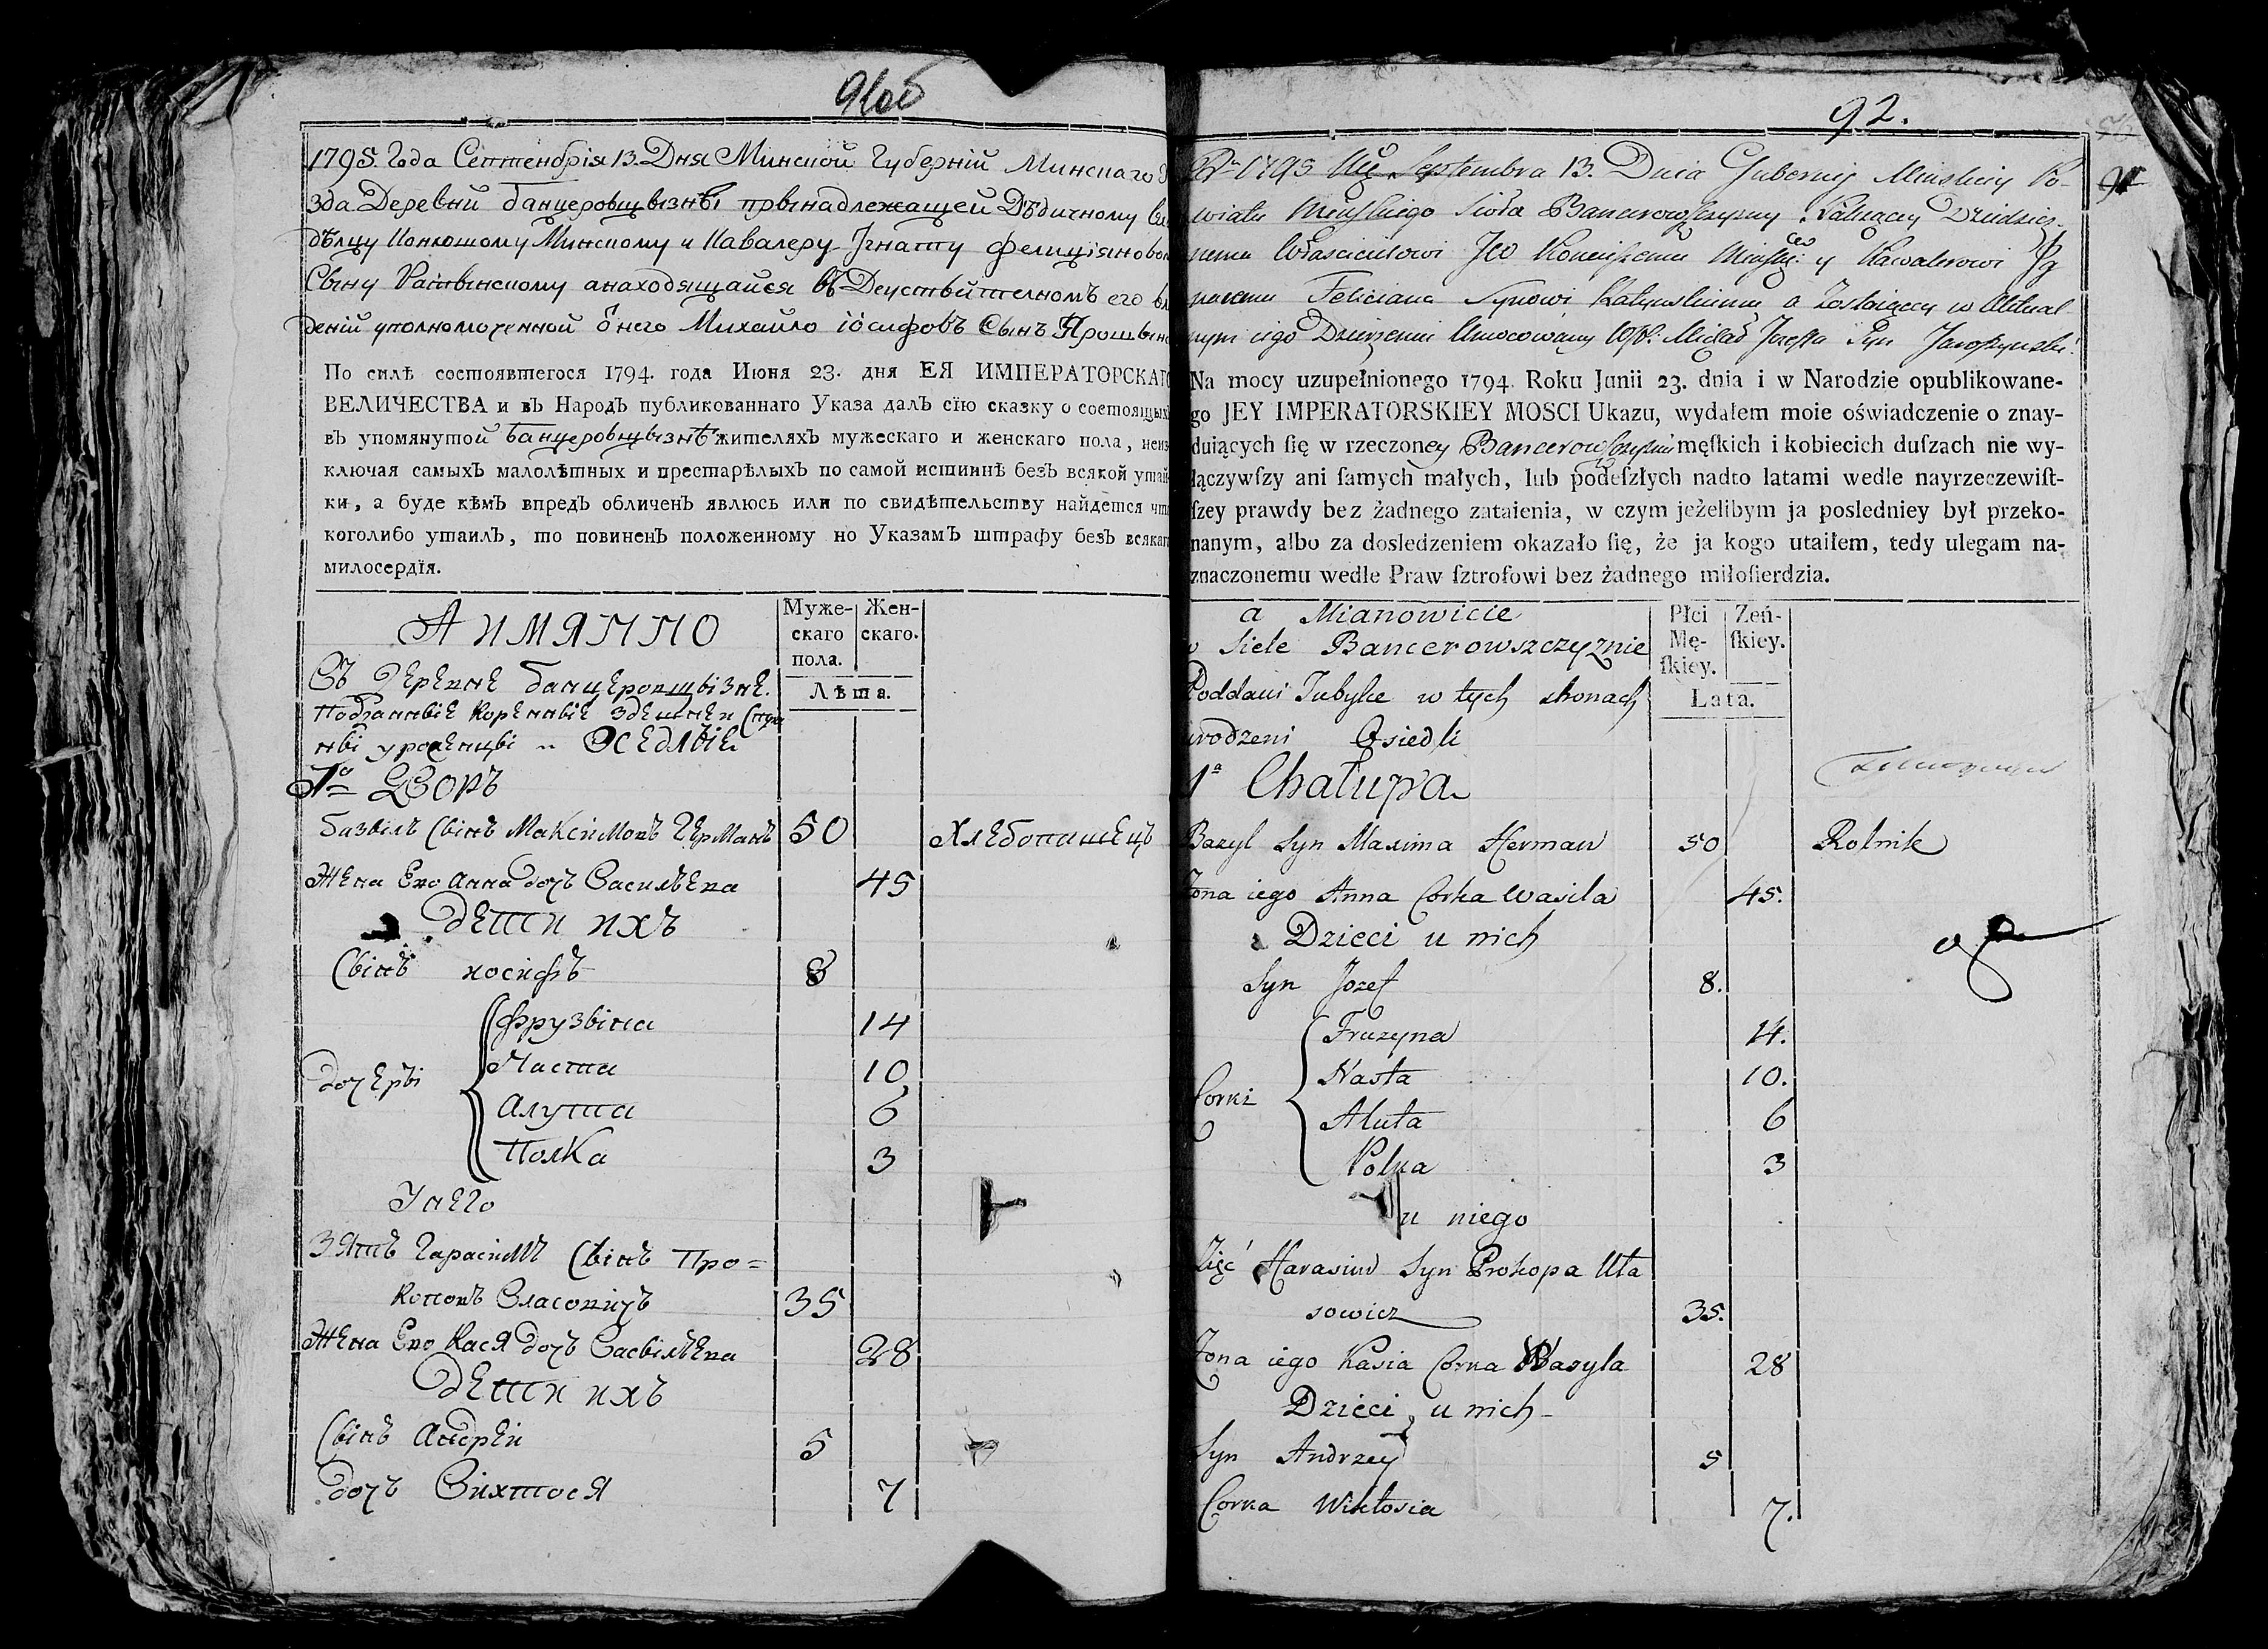 91об
1795. Года Септенбрія 13. Дня Минской Губерній Минскаго
зда Деревни банцеровщвізнві прѣнадлежащей Дѣдичному
дѣлцу Конюшому Минскому и Кавалеру Ігнату фелиціяново
Свіну Ратвінскому анаходящайся въ Деиствителномъ его
деній уполномоченной ѿ него Михайло іосифовъ Свінъ Ярошвін
По силѣ состоявшегося 1794. года Июня 23. дня ЕЯ ИМПЕРАТОРСКАГО
ВЕЛИЧЕСТВА и въ НародЪ публикованнаго Указа далЪ сїю сказку о состоящыхЪ
въ упомянутой банцеровщвізнѣ жителяхЪ мужескаго и женскаго пола, неиз
ключая самыхЪ малолѣтныхъ и престарѣлыхЪ по самой истиннѣ безЪ всякой утай
ки, а буде кѣмЪ впредЪ обличенЪ явлюсь или по свидѣтельству найдется что
коголибо утаилЪ, то повиненЪ положенному по УказамЪ штрафу безЪ всякаго
милосердїя.
А ИМЯННО
Муже- Жен-
скаго скаго.
пола.
Лѣта.
Въ Деревнѣ банцеровщвізне.
Подданнвіе Коренные здешнеи
нві уроженцві и Оседлвіе
1º Дворъ
базвілъ Свінъ Максімовъ Германъ 50 Хлебопашецъ
Жена Его Анна дочъ Василѣва 45
дети ихъ
Свінъ иосифъ 8
дочерві
Фрузвіна 14
Наста 10
Алута 6
Полка 3
У него
Зять Гарасімъ Свінъ Про=
коповъ Власовичъ 35
Жена Его Кася дочъ Васвілѣва 28
дети ихъ
Свінъ Андреи 5
дочъ Вихтося 7
92.
91
Rᵘ 1795 Mca Septembra 13. Dnia Gubernij Minskiey Po-
wiatu Minskiego Sioła Bancerowszczyzny Dziedzicz-
nemu Włascicielowi JW Koniuszemu Minskᵉᵐᵘ y Kawalerowi Jg
nacemu Feliciana Synowi Ratynskiemu a Zostaiącey w Aktual-
nym iego Dzierzeniu Umocowany WJP. Michał Jozefa Syn Jaroszynski
Na mocy uzupełnionego 1794. Roku Junii 23. dnia i w Narodzie opublikowane-
go JEY IMPERATORSKIEY MOSCI Ukazu, wydałem moie oświadczenie o znay-
duiących ſię w rzeczoney Bancerowszczyznie męſkich i kobiecich duſzach nie wy-
łączywſzy ani ſamych małych, lub podeſzłych nadto latami wedle nayrzeczewiſt-
ſzey prawdy bez żadnego zataienia, w czym jeżelibym ja posledniey był przeko-
nanym, albo za dosledzeniem okazało ſię, że ja kogo utaiłem, tedy ulegam na-
znaczonemu wedle Praw ſztrofowi bez żadnego miłoſierdzia.
a Mianowicie
Płci Zeń-
Mę- ſkiey.
ſkiey.
Lata.
w Siele Bancerowszczyznie
Poddani Tubylce w tych stronach
urodzeni Osiedli
1ª Chałupa
Bazyl Syn Maxima Herman 50 Rolnik
Żona iego Anna Corka Wasila 45.
Dzieci u nich
Syn Jozef 8.
Corki
Fruzyna 14.
Nasta 10.
Aluta 6
Polka 3
u niego
Zięć Harasim Syn Prokopa Ułа
sowicz 35.
Żona iego Kasia Corka Wasyla 28
Dzieci u nich
Syn Andrzey 5
Corka Wiktosia 7.